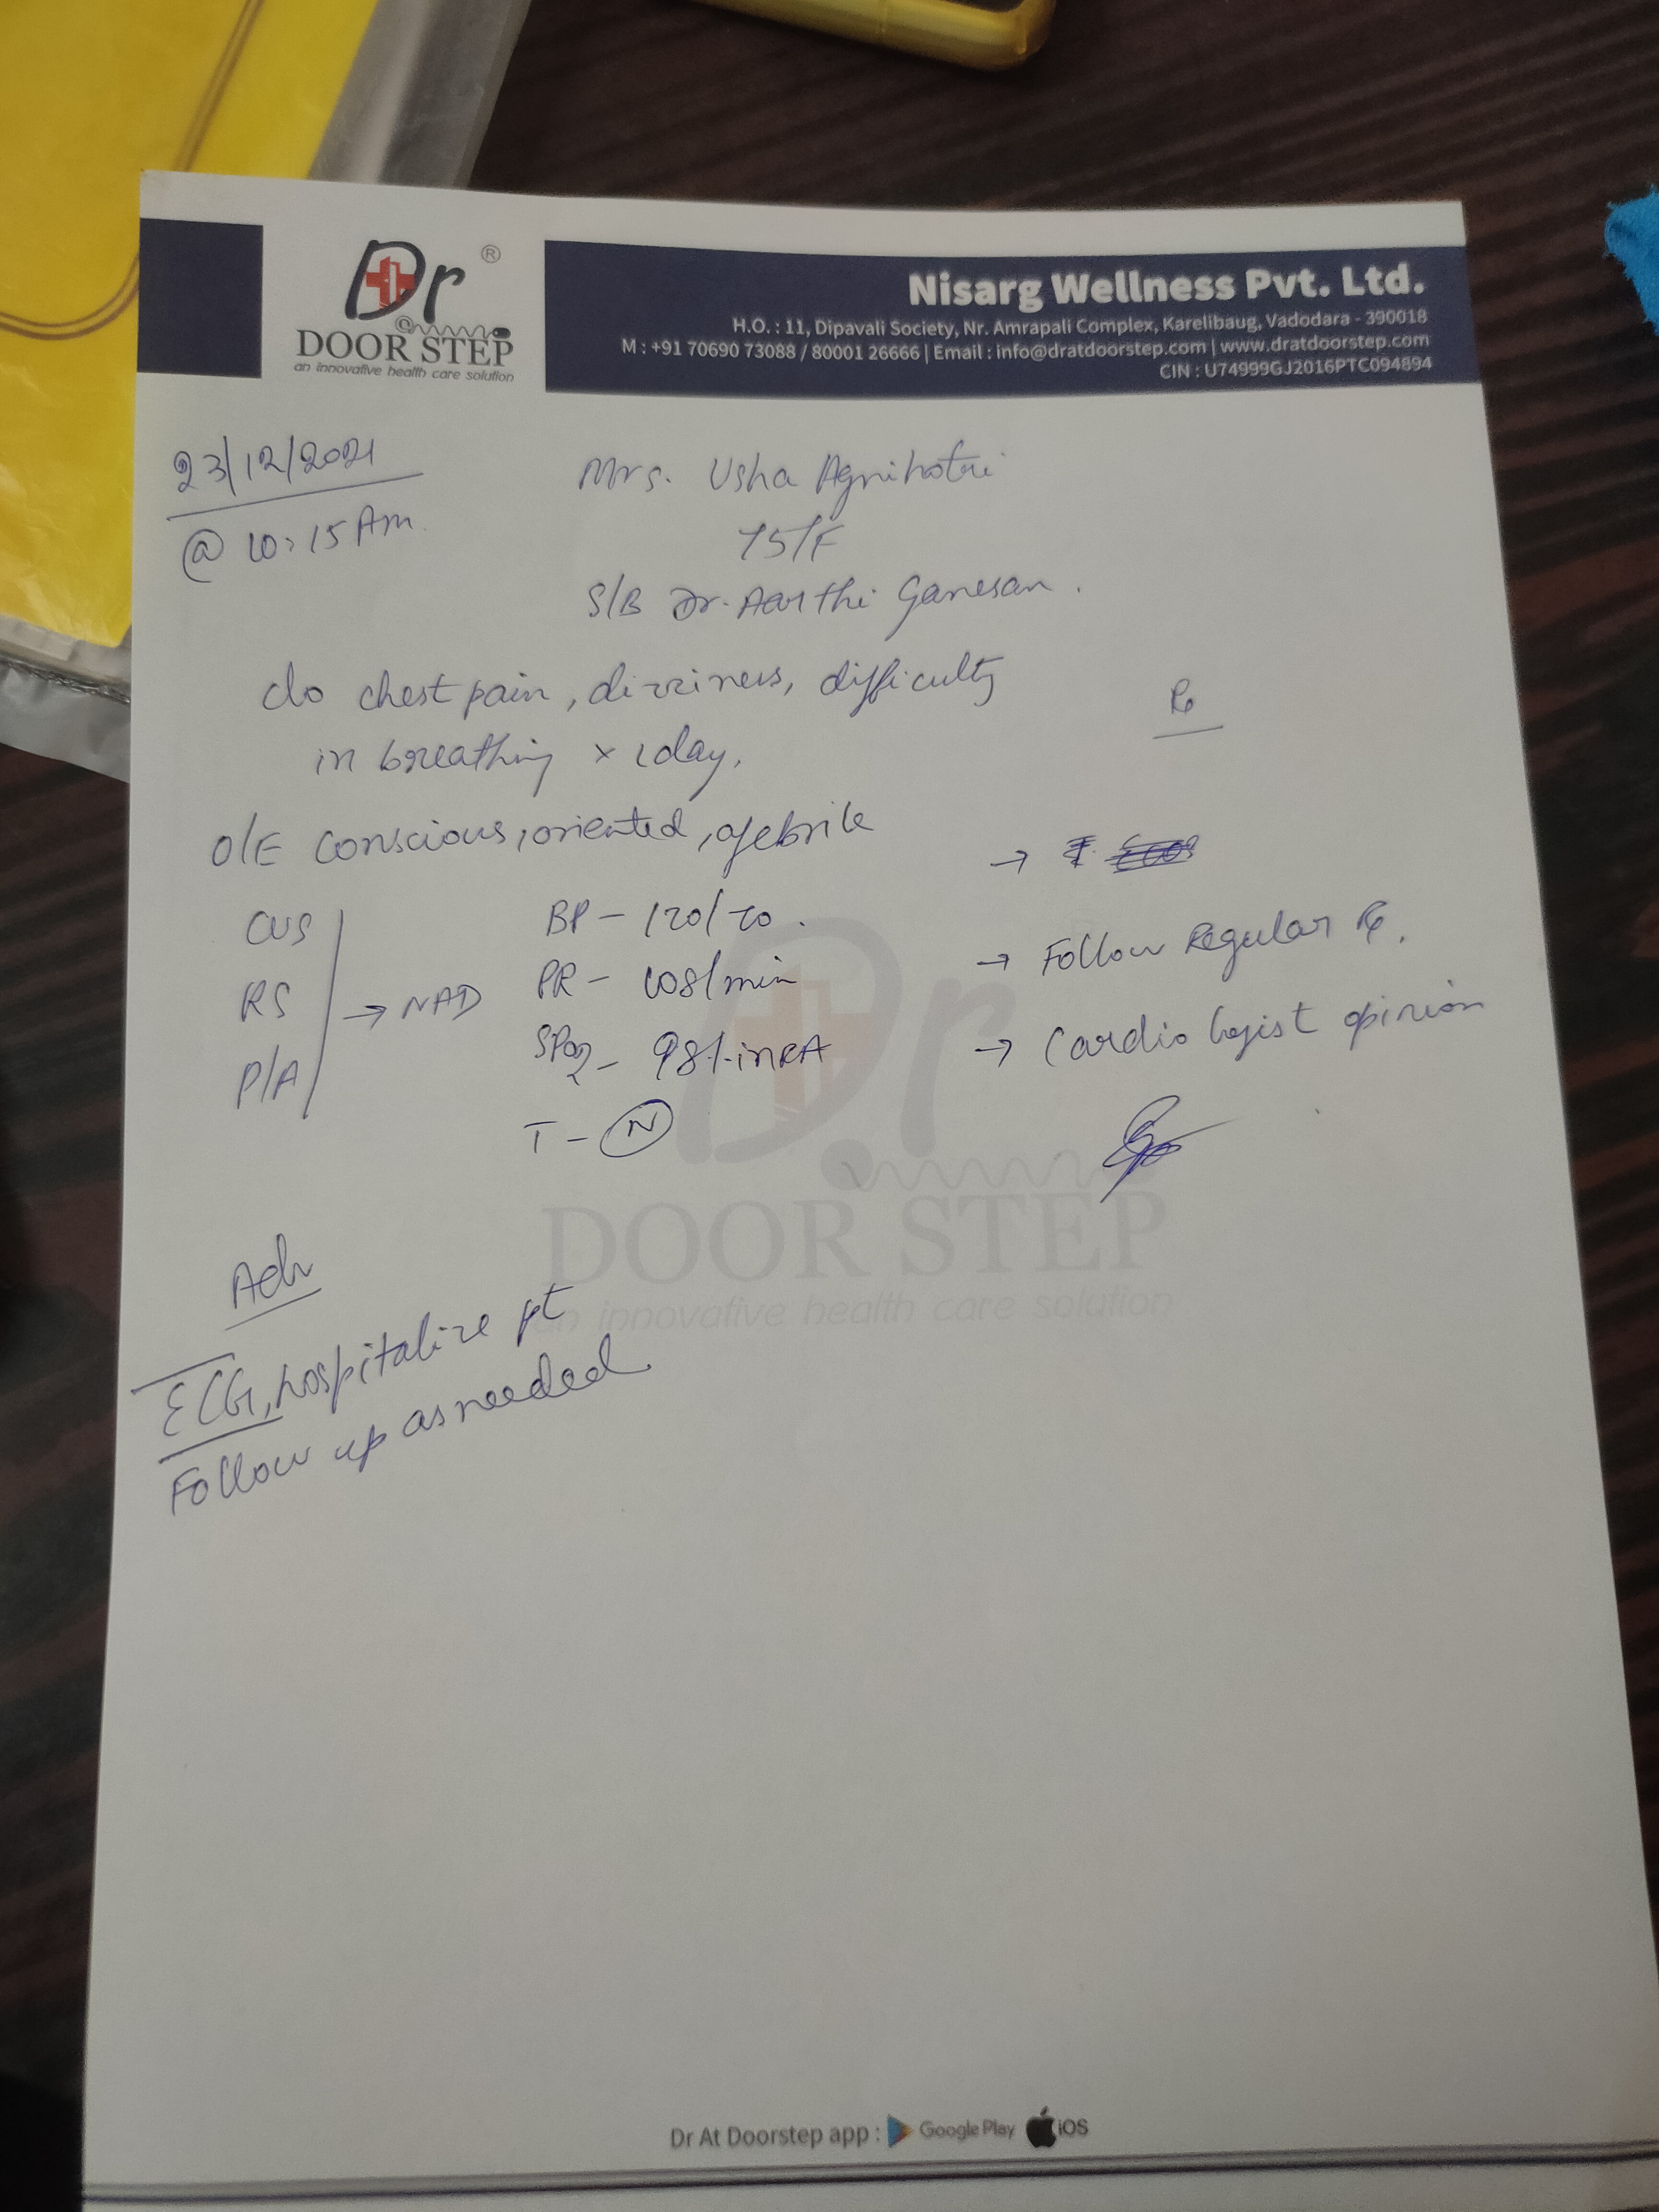 Dr ®
@
DOOR STEP
an innovative health care solution
Nisarg Wellness Pvt. Ltd.
H.O. : 11, Dipavali Society, Nr. Amrapali Complex, Karelibaug, Vadodara - 390018
M : +91 70690 73088 / 80001 26666 | Email : info@dratdoorstep.com | www.dratdoorstep.com
CIN : U74999GJ2016PTC094894
23/12/2021
@ 10:15 Am.
Mrs. Usha Agnihotri
75/F
S/B Dr. Aarthi Ganesan.
c/o chest pain, dizziness, difficulty
in breathing x 1day.
Rx
O/E conscious, oriented, afebrile
CVS
RS
P/A
→ NAD
BP - 120/70.
PR - 108/min
SPO2 - 98% in RA
T - N
→ Follow Regular Rx.
→ Cardiologist opinion
Adv
ECG, hospitalize pt
Follow up as needed
Dr
DOOR STEP
an innovative health care solution
Dr At Doorstep app : Google Play iOS